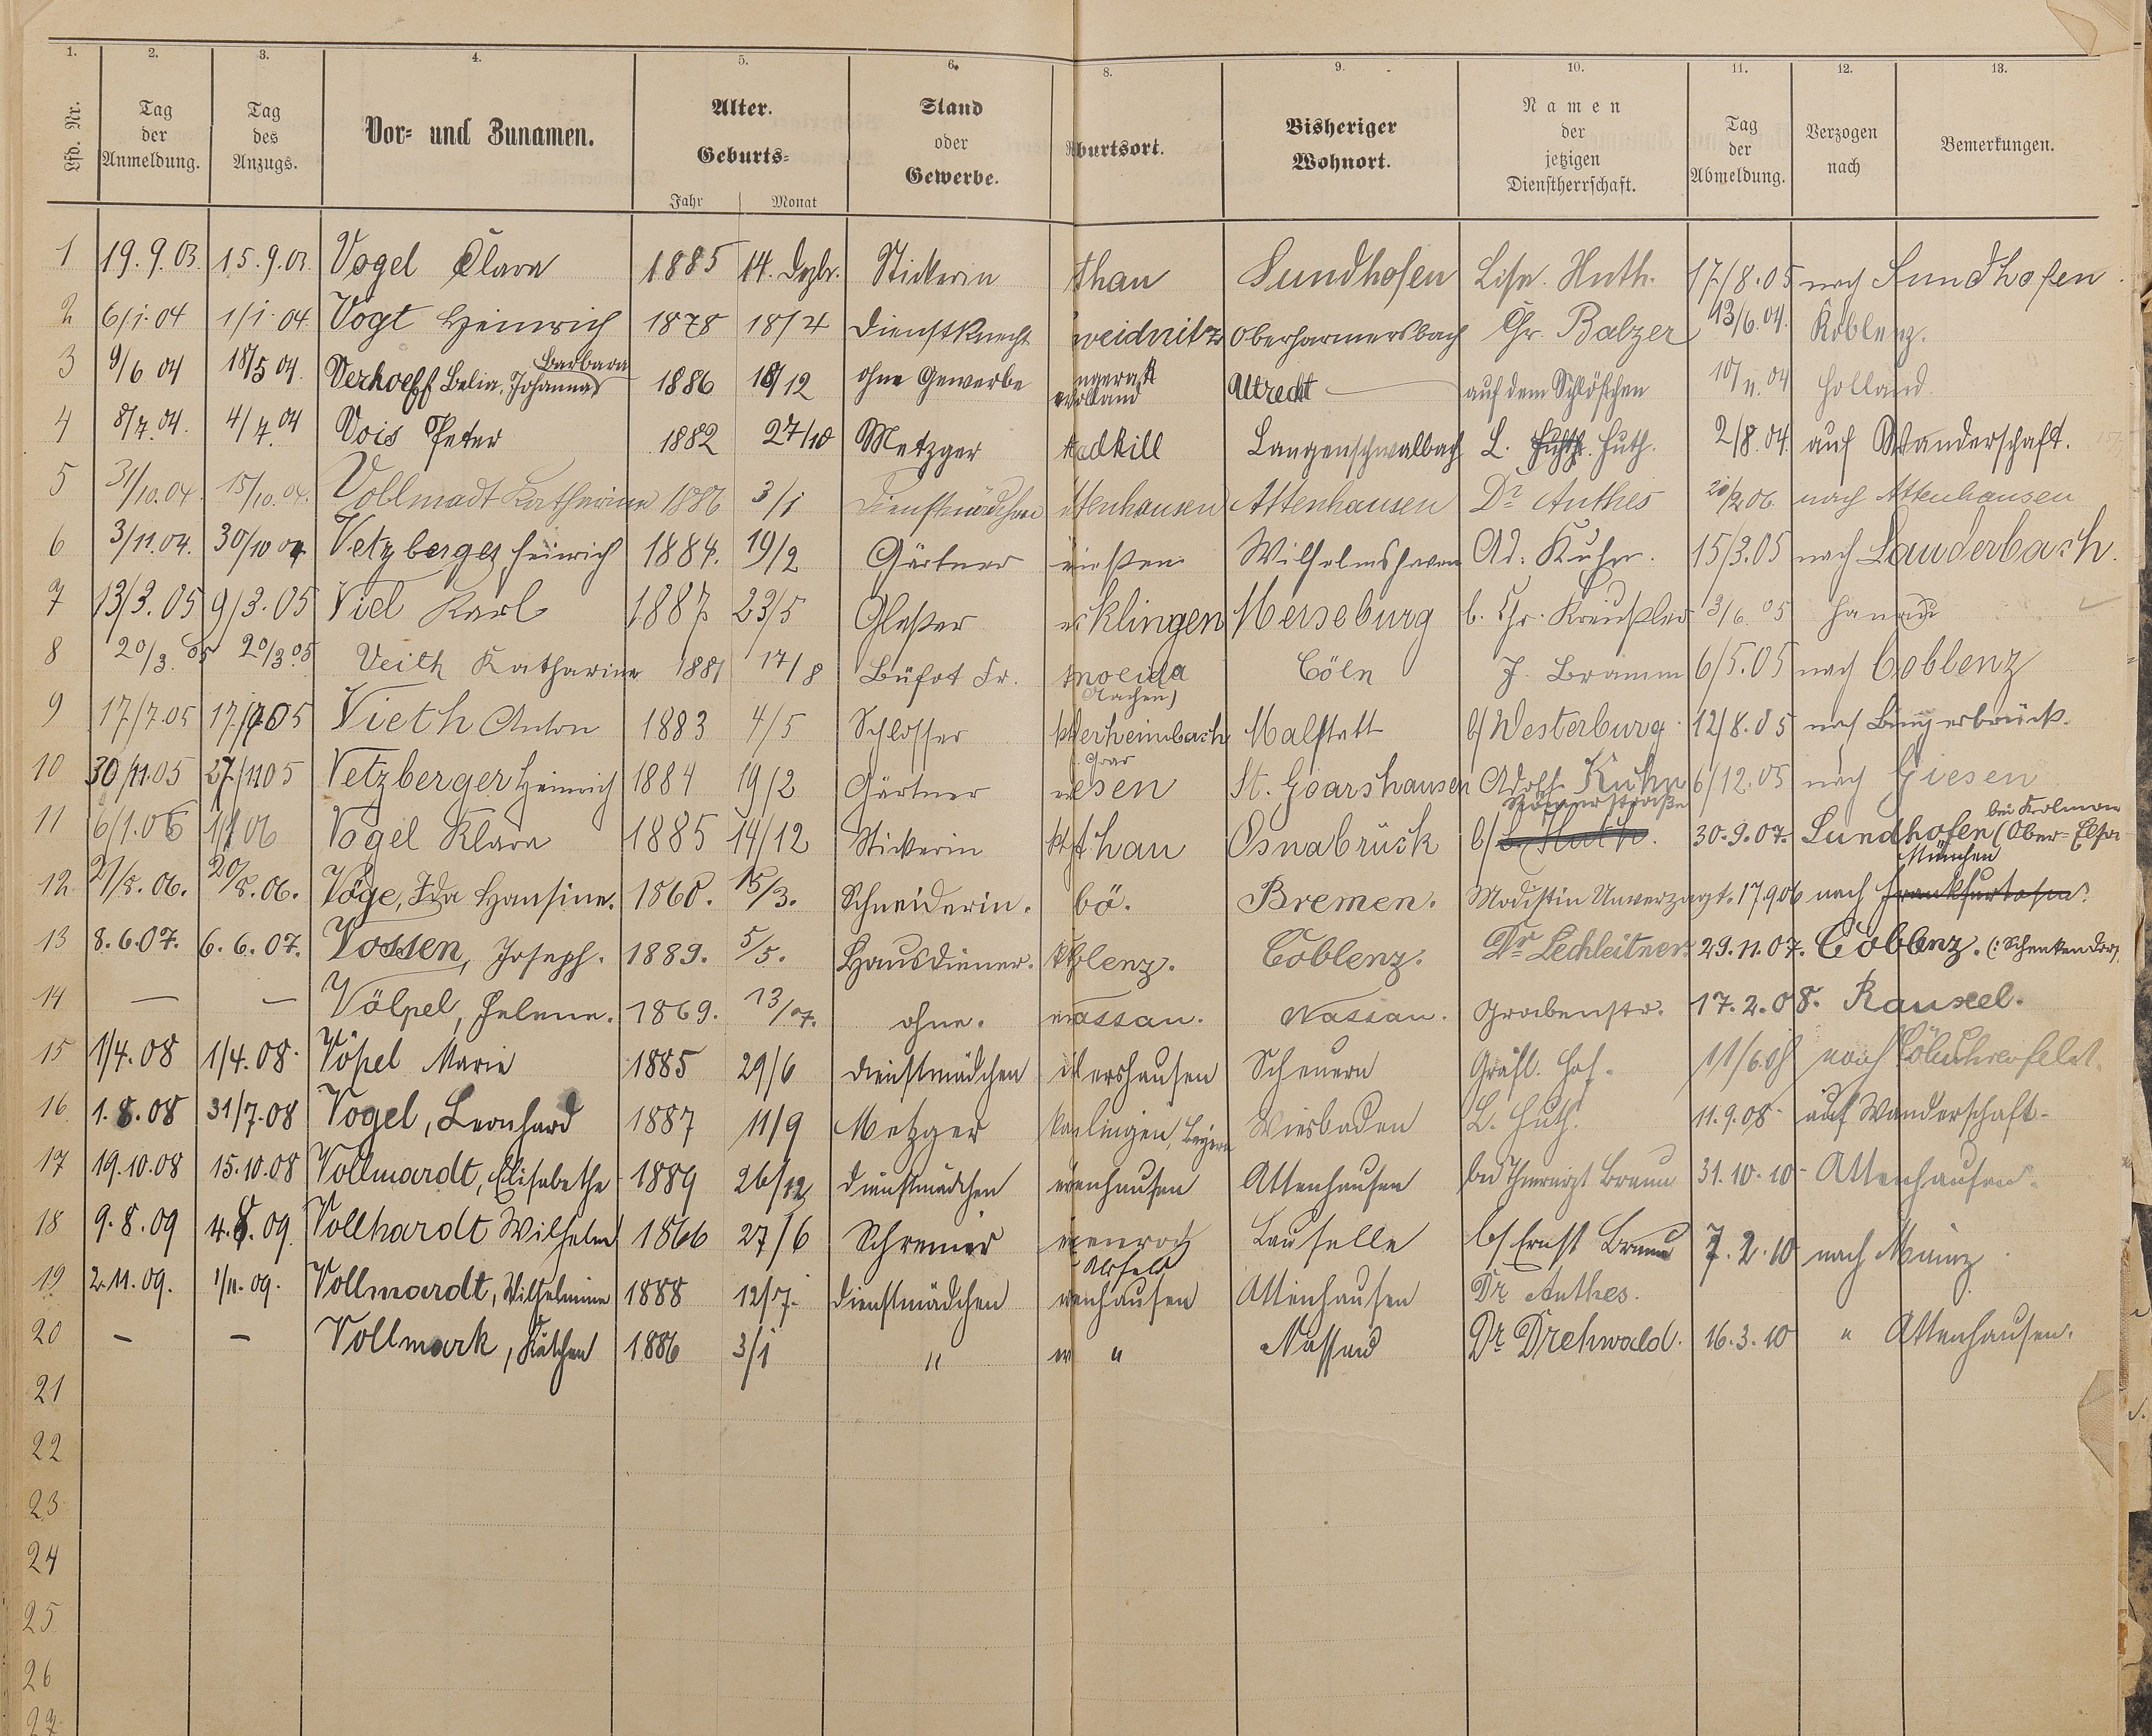 1. 2. 3. 4. 5. 6. 8. 9. 10. 11. 12. 13.
Lfd. Nr. Tag der Anmeldung. Tag des Anzugs. Vor- und Zunamen. Alter. Geburts- Jahr Monat Stand oder Gewerbe. burtsort. Bisheriger Wohnort. Namen der jetzigen Dienstherrschaft. Tag der Abmeldung. Verzogen nach Bemerkungen.
1 19.9.03. 15.9.03. Vogel Clara 1885 14. Dzbr. Stickerin than Sundhofen Lise. Huth. 17/8.05 nach Sundhofen.
2 6/1.04 1/1.04 Vogt Heinrich 1878 18/4 Dienstknecht weidnitz Oberharmersbach Chr. Balzer 13/6.04. Koblenz.
3 9/6 04 18/5 04. Verhoeff Belia, Johanna Barbara 1886 18/12 ohne Gewerbe Holland Utrecht auf dem Schlößchen 10/11.04 Holland
4 8/7.04. 4/7.04 Vois Peter 1882 27/10 Metzger adkill Langenschwalbach L. Huth. 2/8.04. auf Wanderschaft.
5 31/10.04. 15/10.04. Vollmadt Katharina 1886 3/1 Dienstmädchen ttenhausen Attenhausen Dr Anthes 20/2.06. nach Attenhausen
6 3/11.04. 30/10 04 Vetzberger Heinrich 1884. 19/2 Gärtner ießen Wilhelmshaven Ad. Kuhn. 15/3.05 nach Lauderbach.
7 13/3.05 9/3.05 Viel Karl 1887 23/5 Glaßer klingen Merseburg b. Chr. Kreußler 3/6.05 Hanau
8 20/3.05 20/3 05 Veith Katharina 1881 17/8 Büfet Fr. Aachen) Cöln J. Bramm 6/5.05 nach Coblenz
9 17/7.05 17/7 05 Vieth Anton 1883 4/5 Schlosser erheimbach Malstatt b/ Westerburg 12/8.05 nach Bingerbrück.
10 30/11.05 27/11 05 Vetzberger Heinrich 1884 19/2 Gärtner esen St. Goarshausen Adolf Kuhn 6/12.05 nach Giesen
11 6/1.06 1/1 06 Vogel Klara 1885 14/12 Stickerin than Osnabrück b/ L. Huth. 30.9.07. Sundhofen (Ober-Elsa bei Kolmar
12. 21/5.06. 20/5.06. Vöge, Ida Hansine. 1860. 15/3. Schneiderin. bö. Bremen. Modistin Unverzagt. 17.9 06 nach München Frankfurt a/m.
13 8.6.07. 6.6.07. Vossen, Joseph. 1889. 5/5. Hausdiener. blenz. Coblenz. Dr Lechleitner. 29.11.07. Coblenz. (: Schenkendorf
14 — — Völpel, Helene. 1869. 13/7. ohne. assau. Nassau. Grabenstr. 17.2.08. Rauxel.
15 1/4.08 1/4.08. Vöpel Marie 1885 29/6 Dienstmädchen ershausen Scheuern Gräfl. Hof. 11/6.08 nach
16 1.8.08 31/7.08 Vogel, Leonhard 1887 11/9 Metzger lingen, Bayern Wiesbaden L. Huth. 11.9.08. auf Wanderschaft.
17 19.10.08 15.10.08 Vollmardt, Elisabethe 1889 26/12 Dienstmädchen enhausen Attenhausen bei Thierarzt Braun 31.10.10. Attenhausen.
18 9.8.09 4.8.09 Vollhardt Wilhelm 1866 27/6 Schreiner enrod Alsfeld Lauselle b/ Ernst Braun 7.2.10 nach Mainz
19 2.11.09. 1/11.09. Vollmardt, Wilhelmine 1888 12/7. Dienstmädchen enhausen Attenhausen Dr Anthes.
20 — — Vollmark, Käthchen 1886 3/1 " " Nassau Dr Drehwald. 16.3.10 " Attenhausen.
21
22
23
24
25
26
27